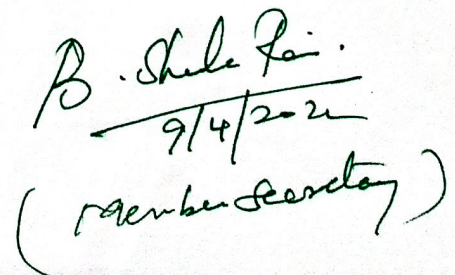 B. Sheela Rani.
9/4/2022
(Member Secretary)